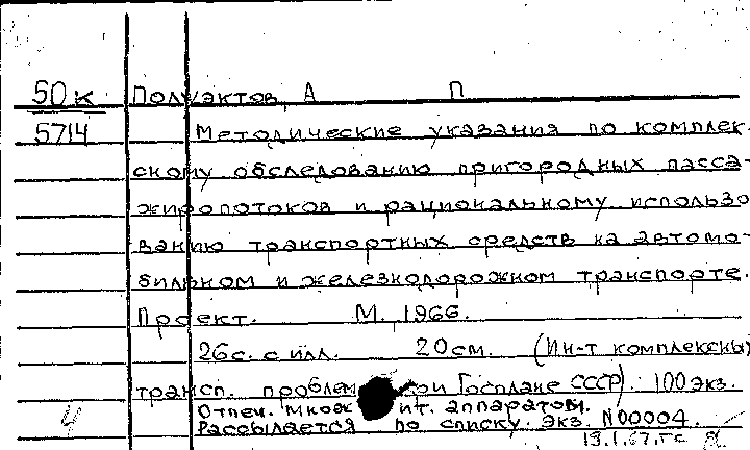 50к Полуэктов, А П
5714 Методические указания по комплек-
скому обследованию пригородных пасса-
жиропотоков и рациональному использо-
ванию транспортных средств на автомо-
бильном и железнодорожном транспорте.
Проект. М. 1966.
26с. с илл. 20см. (Ин-т комплексны
трансп. проблем при Госплане СССР). 100 экз.
Отпеч. множ ит. аппаратом.
Рассылается по списку. экз. N00004.
4 19.1.67.гс